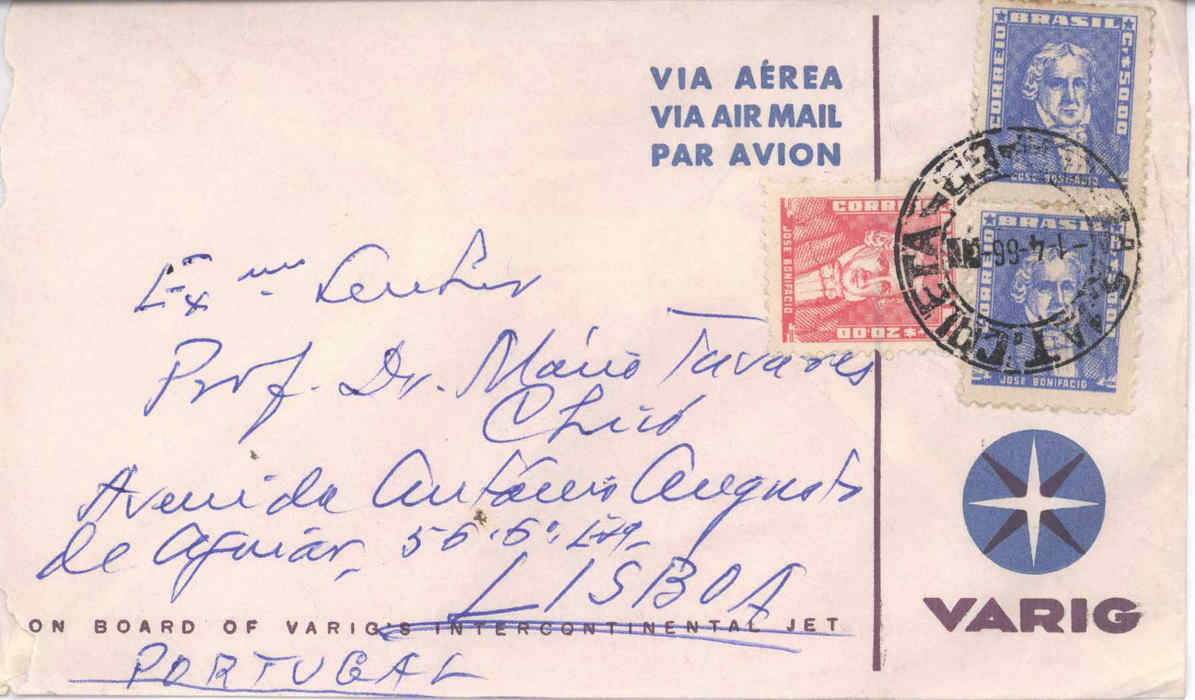 VIA AÉREA
VIA AIR MAIL
PAR AVION
CORREIO BRASIL Cr$ 50,00
JOSE BONIFACIO
CORREIO
JOSE BONIFACIO
20,00
CORREIO BRASIL
JOSE BONIFACIO
T. COLETA
1-4-66
Exmo Senhor
Prof. Dr. Mário Tavares
Chicó
Avenida António Augusto
de Aguiar, 56-6º
LISBOA
ON BOARD OF VARIG'S INTERCONTINENTAL JET
PORTUGAL
VARIG